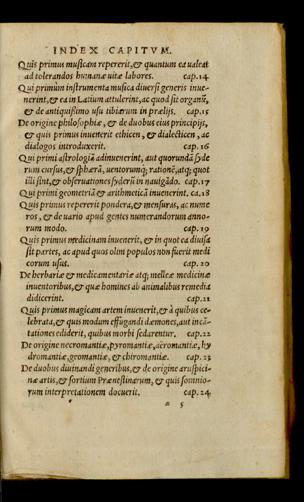 INDEX CAPITVM.
Quis primus musicam repererit, & quantum ea ualeat
ad tolerandos humanæ uitæ labores. cap.14
Qui primùm instrumenta musica diuersi generis inue-
nerint, & ea in Latium attulerint, ac quod sit organū,
& de antiquissimo usu tibiarum in prælijs. cap.15
De origine philosophiæ, & de duobus eius principijs,
& quis primus inuenerit ethicen, & dialecticen, ac
dialogos introduxerit. cap.16
Qui primi astrologiā adinuenerint, aut quorundā syde
rum cursus, & sphæræ, uentorumq; rationē, atq; quot
illi sint, & obseruationes syderū in nauigādo. cap.17
Qui primi geometriā & arithmeticā inuenerint. ca.18
Quis primus repererit pondera, & mensuras, ac nume
ros, & de uario apud gentes numerandorum anno-
rum modo. cap.19
Quis primus medicinam inuenerit, & in quot ea diuisa
sit partes, ac apud quos olim populos non fuerit medi
corum usus. cap.20
De herbariæ & medicamentariæ atq; melleæ medicinæ
inuentoribus, & quæ homines ab animalibus remedia
didicerint. cap.21
Quis primus magicam artem inuenerit, & à quibus ce-
lebrata, & quis modum effugandi dæmones, aut incā-
tationes ediderit, quibus morbi sedarentur. cap.22
De origine necromantiæ, pyromantiæ, aëromantiæ, hy
dromantiæ, geomantiæ, & chiromantiæ. cap.23
De duobus diuinandi generibus, & de origine aruspici-
næ artis, & sortium Prænestinarum, & quis somnio-
rum interpretationem docuerit. cap.24
a 5